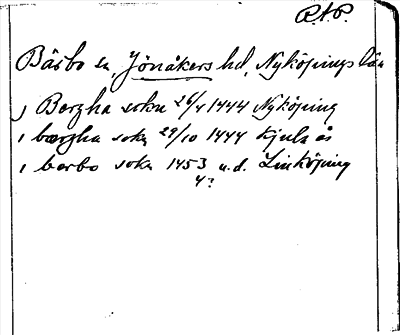 R.A.P.
Bärbo sn, Jönåkers hd, Nyköpings län
, Borgha sokn 26/4 1444 Nyköping
, borgha sokn 29/10 1444 Kjula ås
, barbo sokn 1453 u.d. Linköping
4?